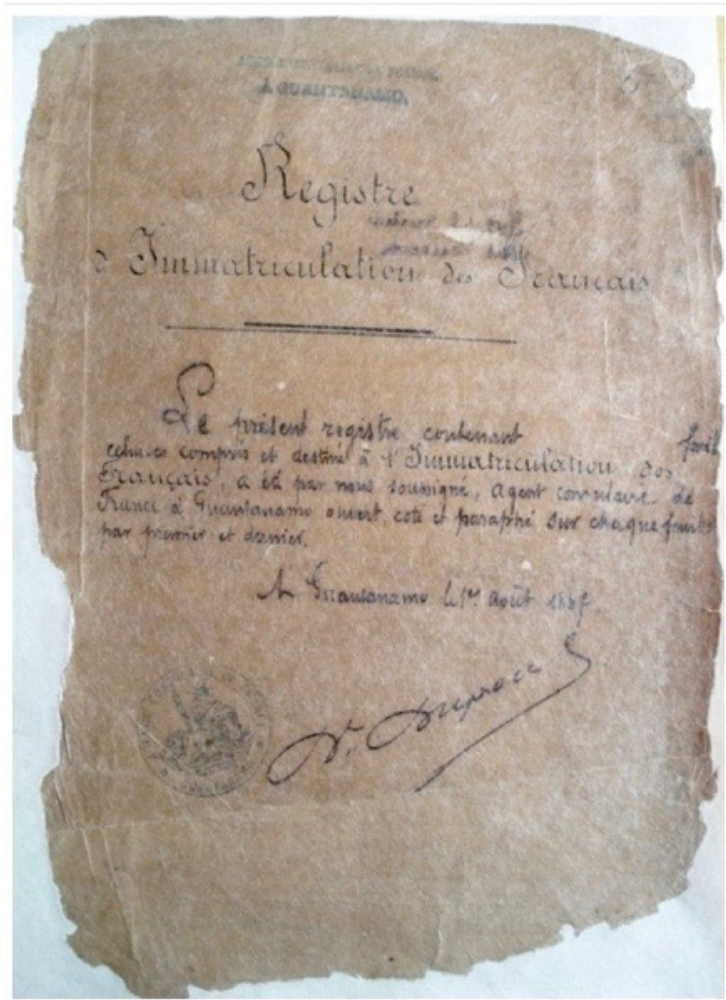 A GUANTANAMO
Registre
d'Immatriculation des Français
Le présent registre contenant feuil
celui-ci compris et destiné à l'Immatriculation des
Français, a été par nous soussigné, agent consulaire de
France à Guantanamo ouvert, coté et paraphé sur chaque feuillet
par premier et dernier.
A Guantanamo le 1er Août